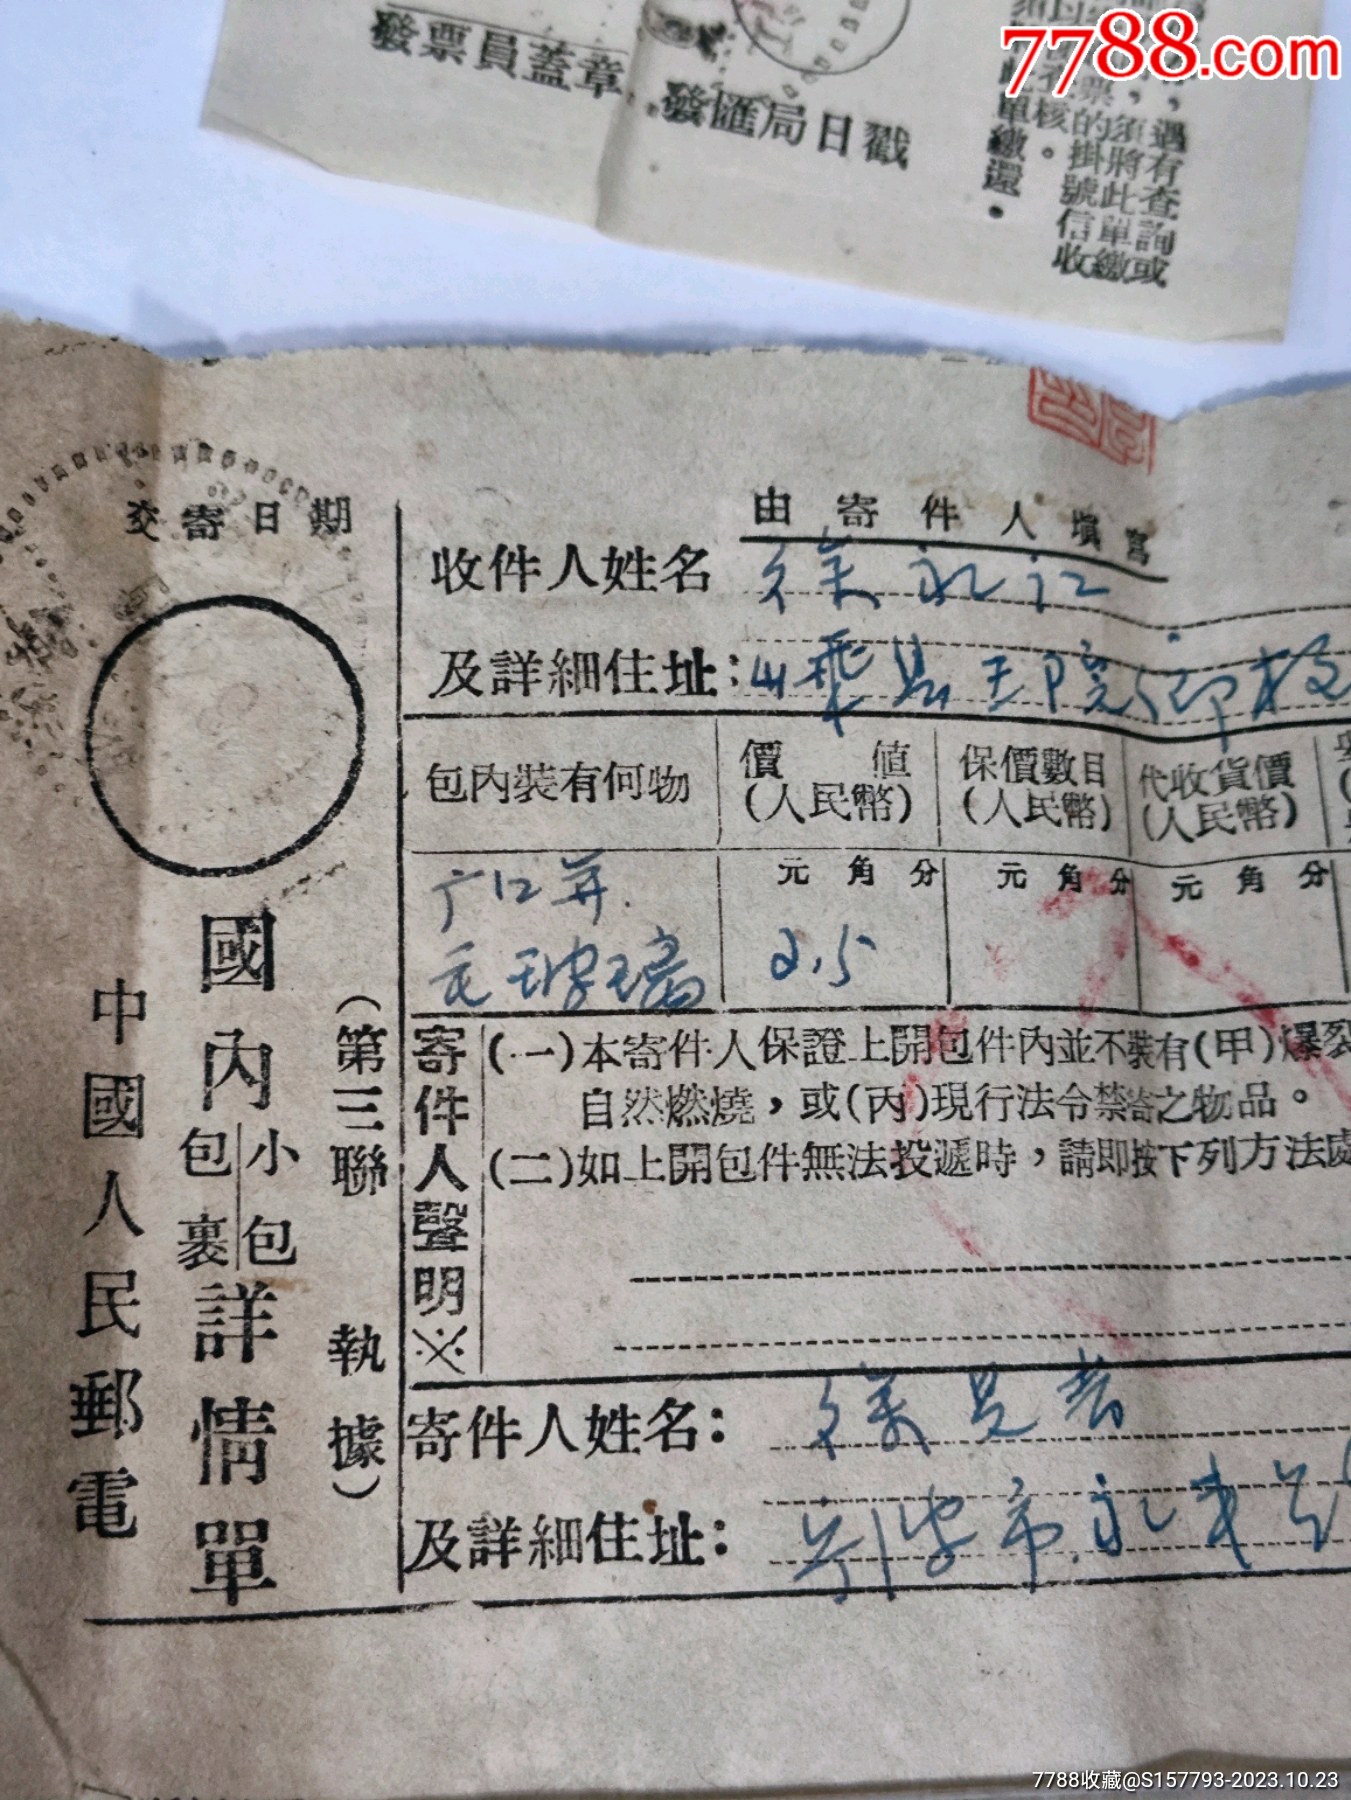 7788.com
發票員蓋章
發匯局日戳
遇有查詢或
須將此單繳
票的掛號信收
核。
單繳還。
由寄件人填寫
交寄日期
收件人姓名
徐永江
及詳細住址：
包內裝有何物
價值
(人民幣)
保價數目
(人民幣)
代收貨價
(人民幣)
元角分
元角分
元角分
广口并
毛玻璃
2.5
國內
小包
包裹
詳情單
(第三聯 執據)
中國人民郵電
寄件人聲明※
(一)本寄件人保證上開包件內並不裝有(甲)爆裂
自然燃燒，或(丙)現行法令禁寄之物品。
(二)如上開包件無法投遞時，請即按下列方法處
寄件人姓名：
及詳細住址：
7788收藏@S157793-2023.10.23